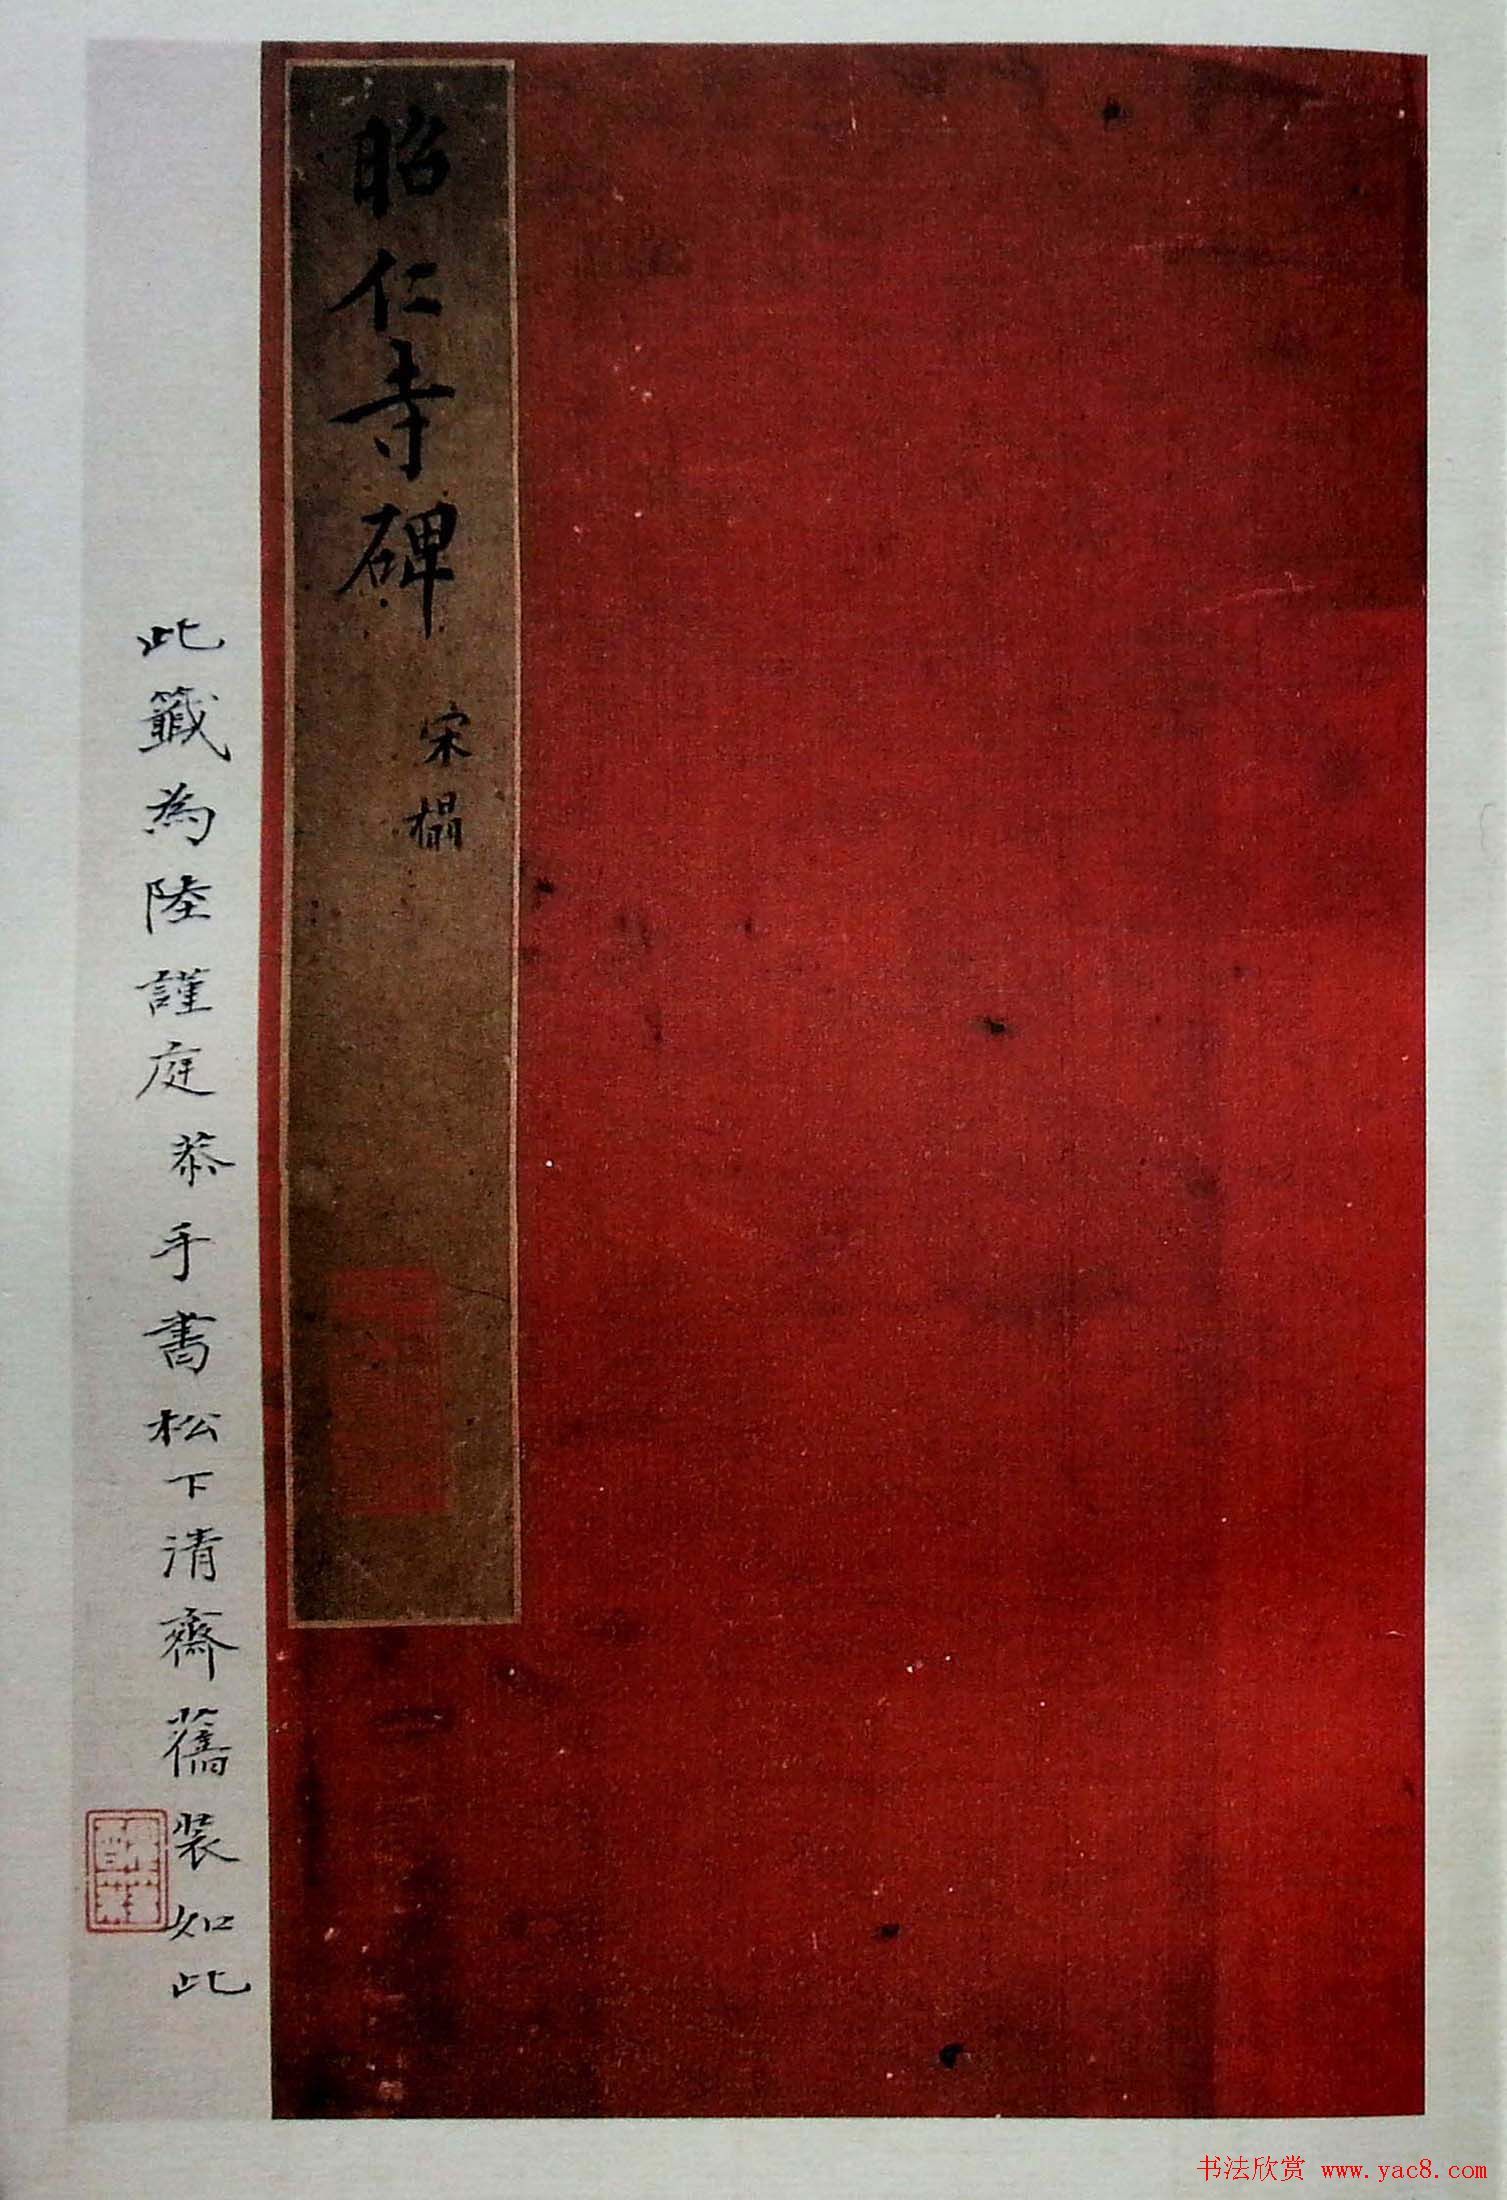 昭仁寺碑
宋榻
此籤為陸謹庭恭手書松下清齋舊装如此
书法欣赏 www.yac8.com